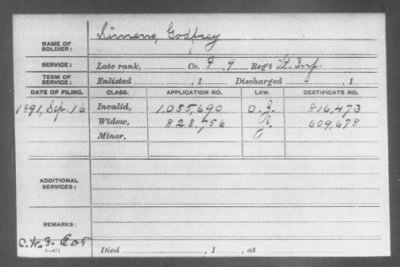 NAME OF SOLDIER: Simens, Godfrey
SERVICE: Late rank, Co. G, 9 Reg't St. Inf.
TERM OF SERVICE: Enlisted , 1 Discharged , 1
DATE OF FILING. CLASS. APPLICATION NO. LAW. CERTIFICATE NO.
1891, Sep. 16 Invalid, 1.055.690 816.473
Widow, 828.756 609.678
Minor,
ADDITIONAL SERVICES:
REMARKS:
Died , 1 , at